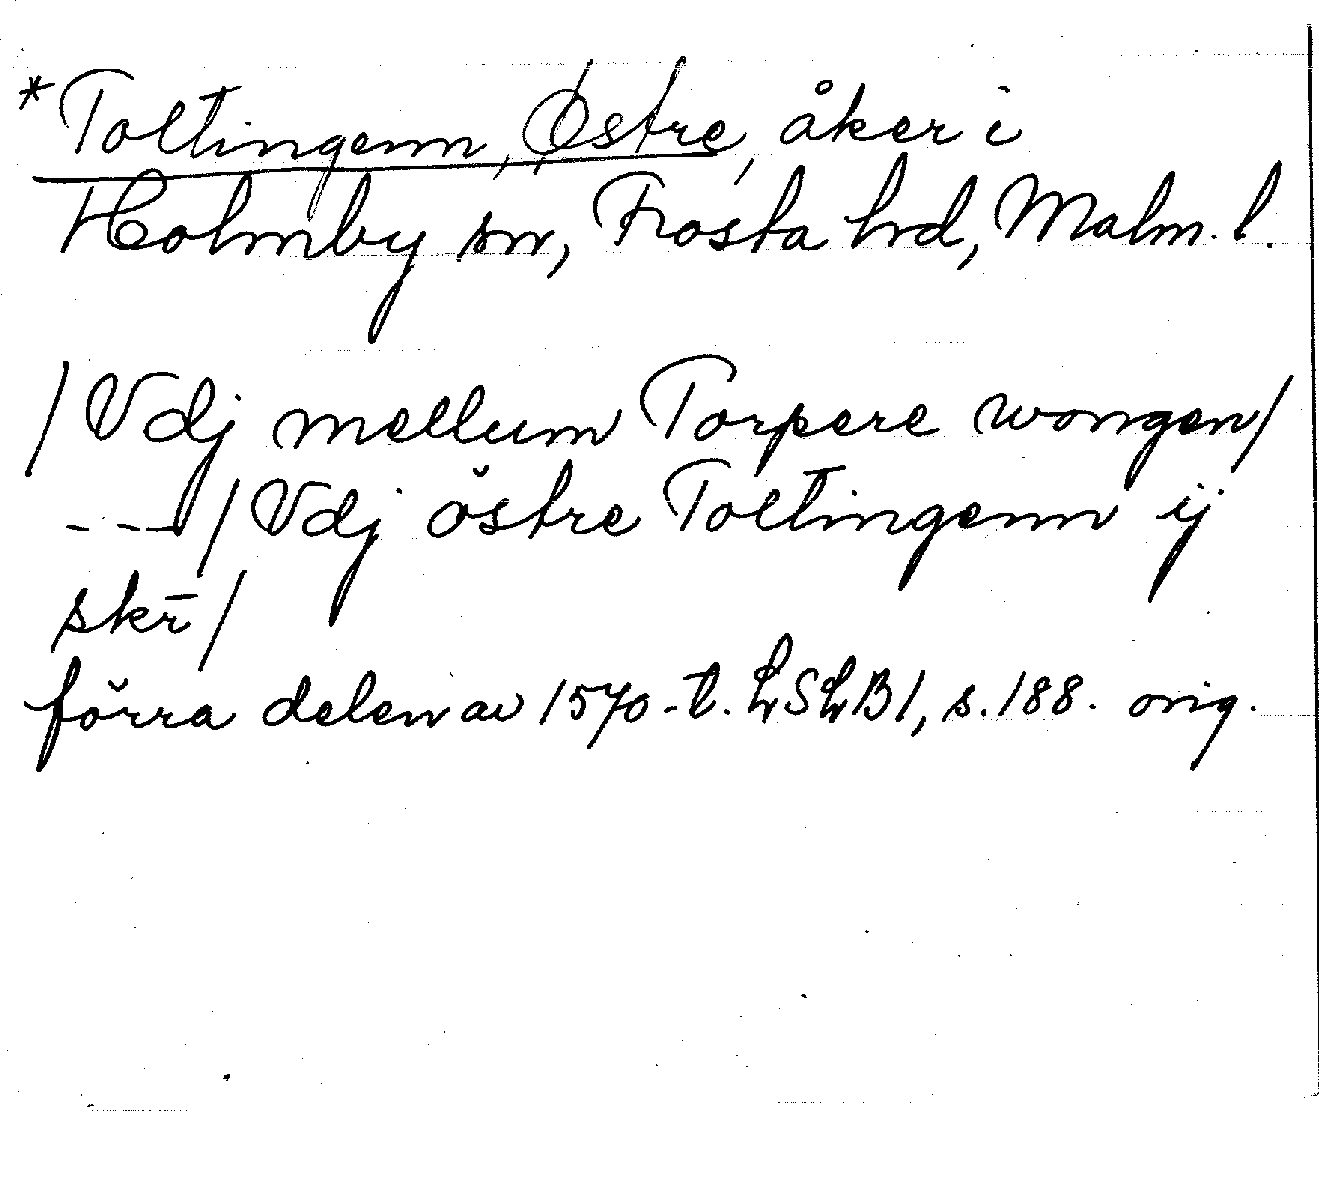 *Toltingenn, Østre, åker i
Holmby sn, Frosta hrd, Malm. l.
/Vdj mellum Torpere wongen/
---/Vdj östre Toltingenn ij
skr̄/
förra delen av 1570-t. LSLB1, s. 188. orig.